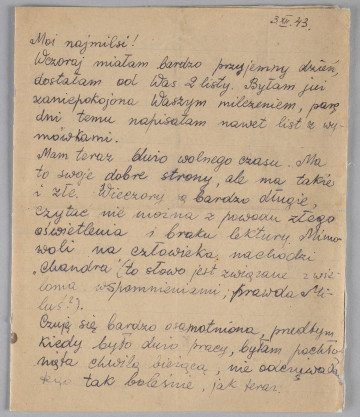 3 XII. 43.
Moi najmilsi!
Wczoraj miałam bardzo przyjemny dzień,
dostałam od Was 2 listy. Byłam już
zaniepokojona Waszym milczeniem, parę
dni temu napisałam nawet list z wy-
mówkami.
Mam teraz dużo wolnego czasu. Ma
to swoje dobre strony, ale ma takie
i złe. Wieczory są bardzo długie,
czytać nie można z powodu złego
oświetlenia i braku lektury. Mimo-
woli na człowieka nachodzi
„Chandra" (to słowo jest związane z wie-
loma wspomnieniami, prawda Mi-
luś?).
Czuję się bardzo osamotniona, przedtym
kiedy było dużo pracy, byłam pochło-
nięta chwilą bieżącą, nie odczuwała
tego tak boleśnie, jak teraz.